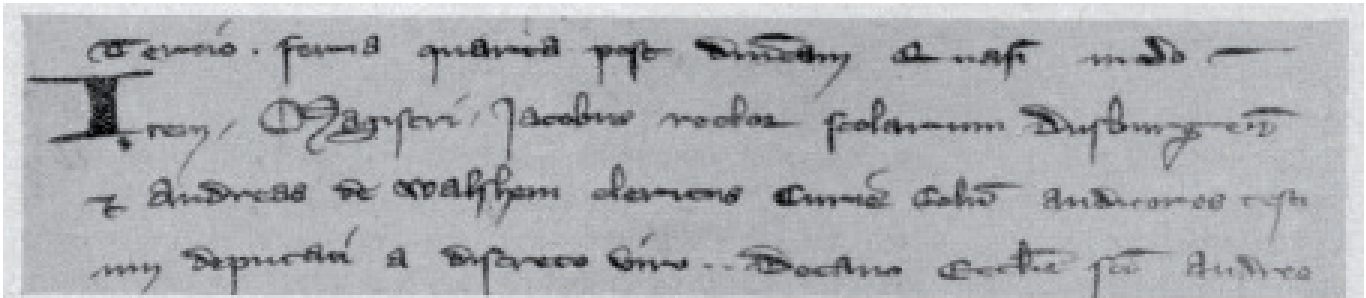 Tercio . feria quarta post dn̄icam Quasi modo
Item / Magistri / Jacobus rector scolarum Dusburgeñ
⁊ Andreas de Walshem clericus Curie Coloñ auditores testi
um deputati a discreto viro .. Decano Ecclie sci Andree